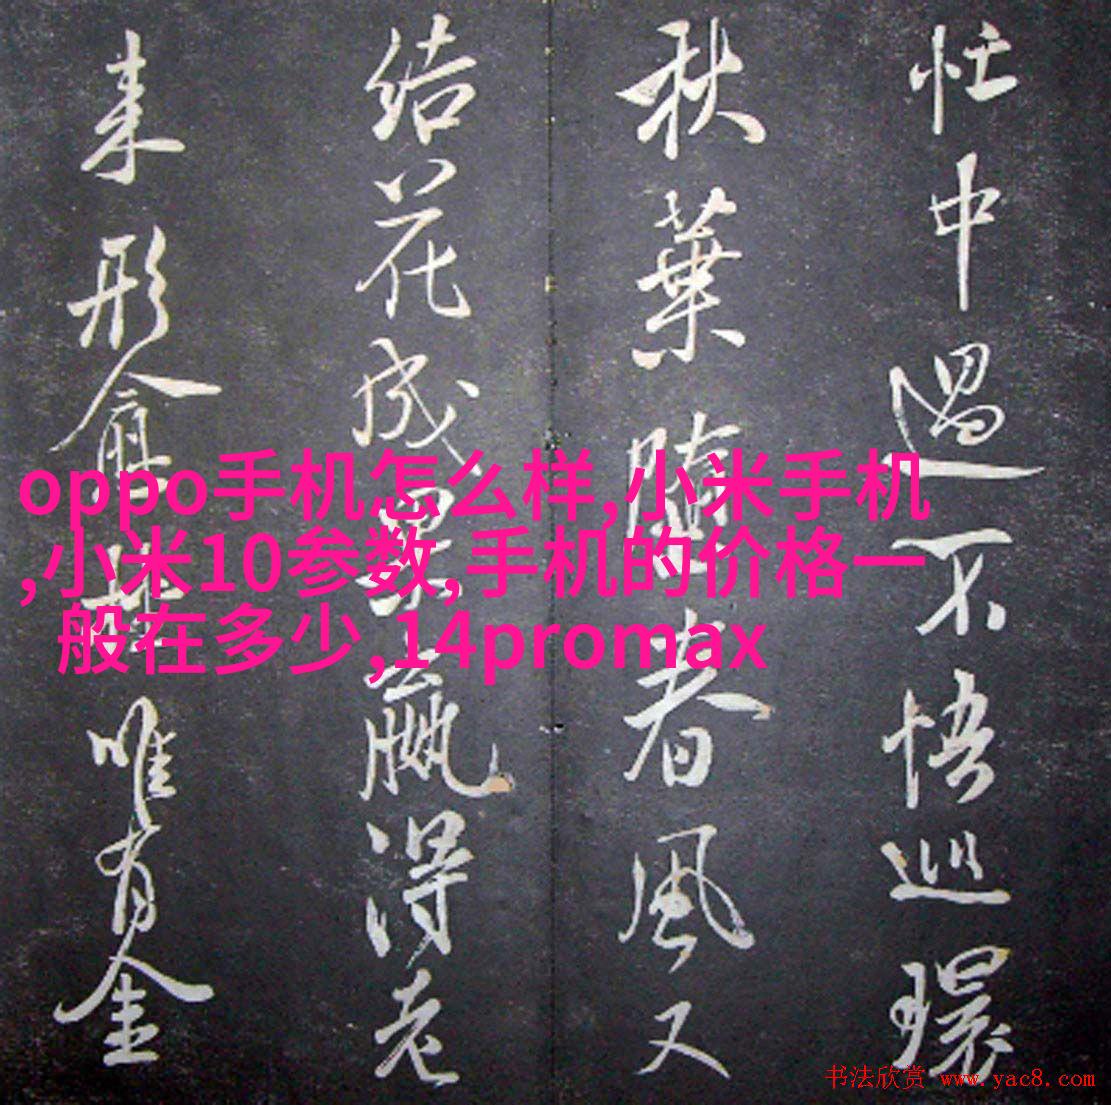 忙中過不悟巡環
秋葉隨春風又
結花成果贏得老
来形唯有金
oppo手机怎么样,小米手机
,小米10参数,手机的价格一
般在多少,14promax
书法欣赏 www.yac8.com